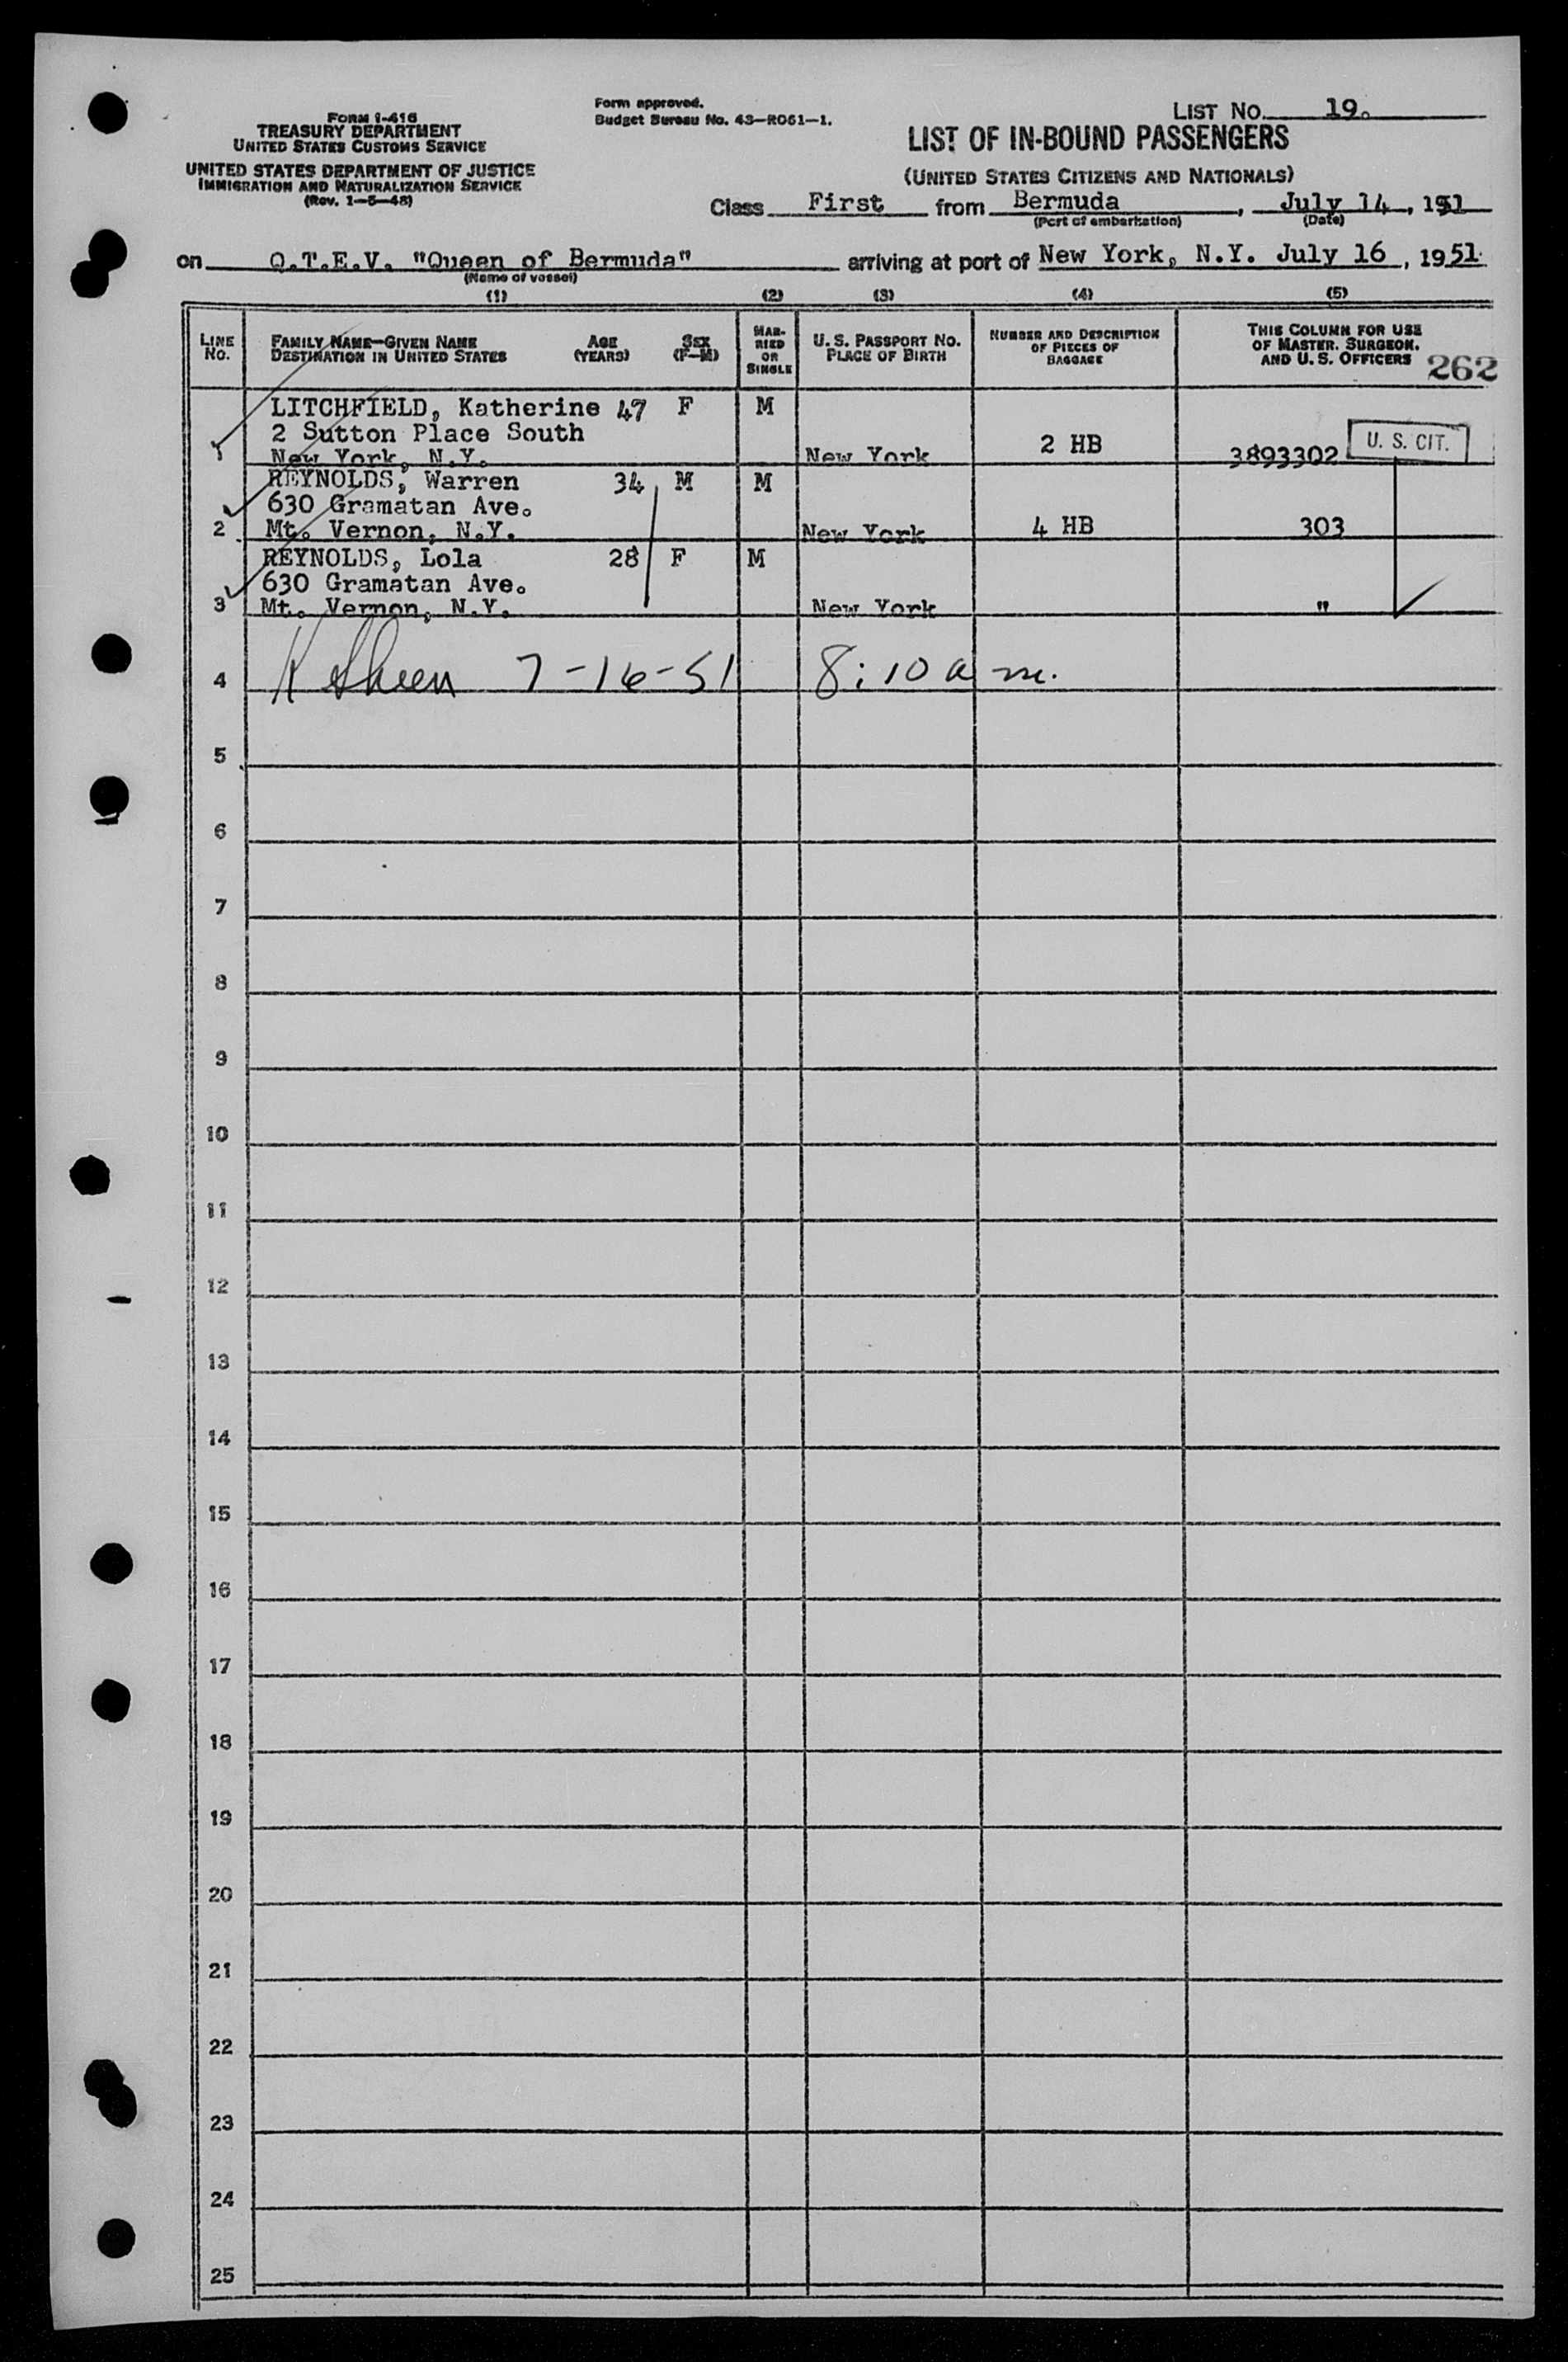 FORM I-416
TREASURY DEPARTMENT
UNITED STATES CUSTOMS SERVICE
UNITED STATES DEPARTMENT OF JUSTICE
IMMIGRATION AND NATURALIZATION SERVICE
(Rev. 1-5-48)
Form approved.
Budget Bureau No. 43-R061-1.
LIST NO. 19.
LIST OF IN-BOUND PASSENGERS
(UNITED STATES CITIZENS AND NATIONALS)
Class First from Bermuda, July 14, 1951
(Port of embarkation) (Date)
on Q.T.E.V. "Queen of Bermuda" arriving at port of New York, N.Y. July 16, 1951
(Name of vessel)
(1) (2) (3) (4) (5)
LINE NO.
FAMILY NAME—GIVEN NAME
DESTINATION IN UNITED STATES
AGE (YEARS)
SEX (F—M)
MARRIED OR SINGLE
U. S. PASSPORT NO.
PLACE OF BIRTH
NUMBER AND DESCRIPTION
OF PIECES OF
BAGGAGE
THIS COLUMN FOR USE
OF MASTER, SURGEON,
AND U. S. OFFICERS
262
LITCHFIELD, Katherine 47 F M
2 Sutton Place South
1 New York, N.Y. New York 2 HB 3893302 U. S. CIT.
REYNOLDS, Warren 34 M M
630 Gramatan Ave.
2 Mt. Vernon, N.Y. New York 4 HB 303
REYNOLDS, Lola 28 F M
630 Gramatan Ave.
3 Mt. Vernon, N.Y. New York "
4 7-16-51 8:10 a m.
5
6
7
8
9
10
11
12
13
14
15
16
17
18
19
20
21
22
23
24
25